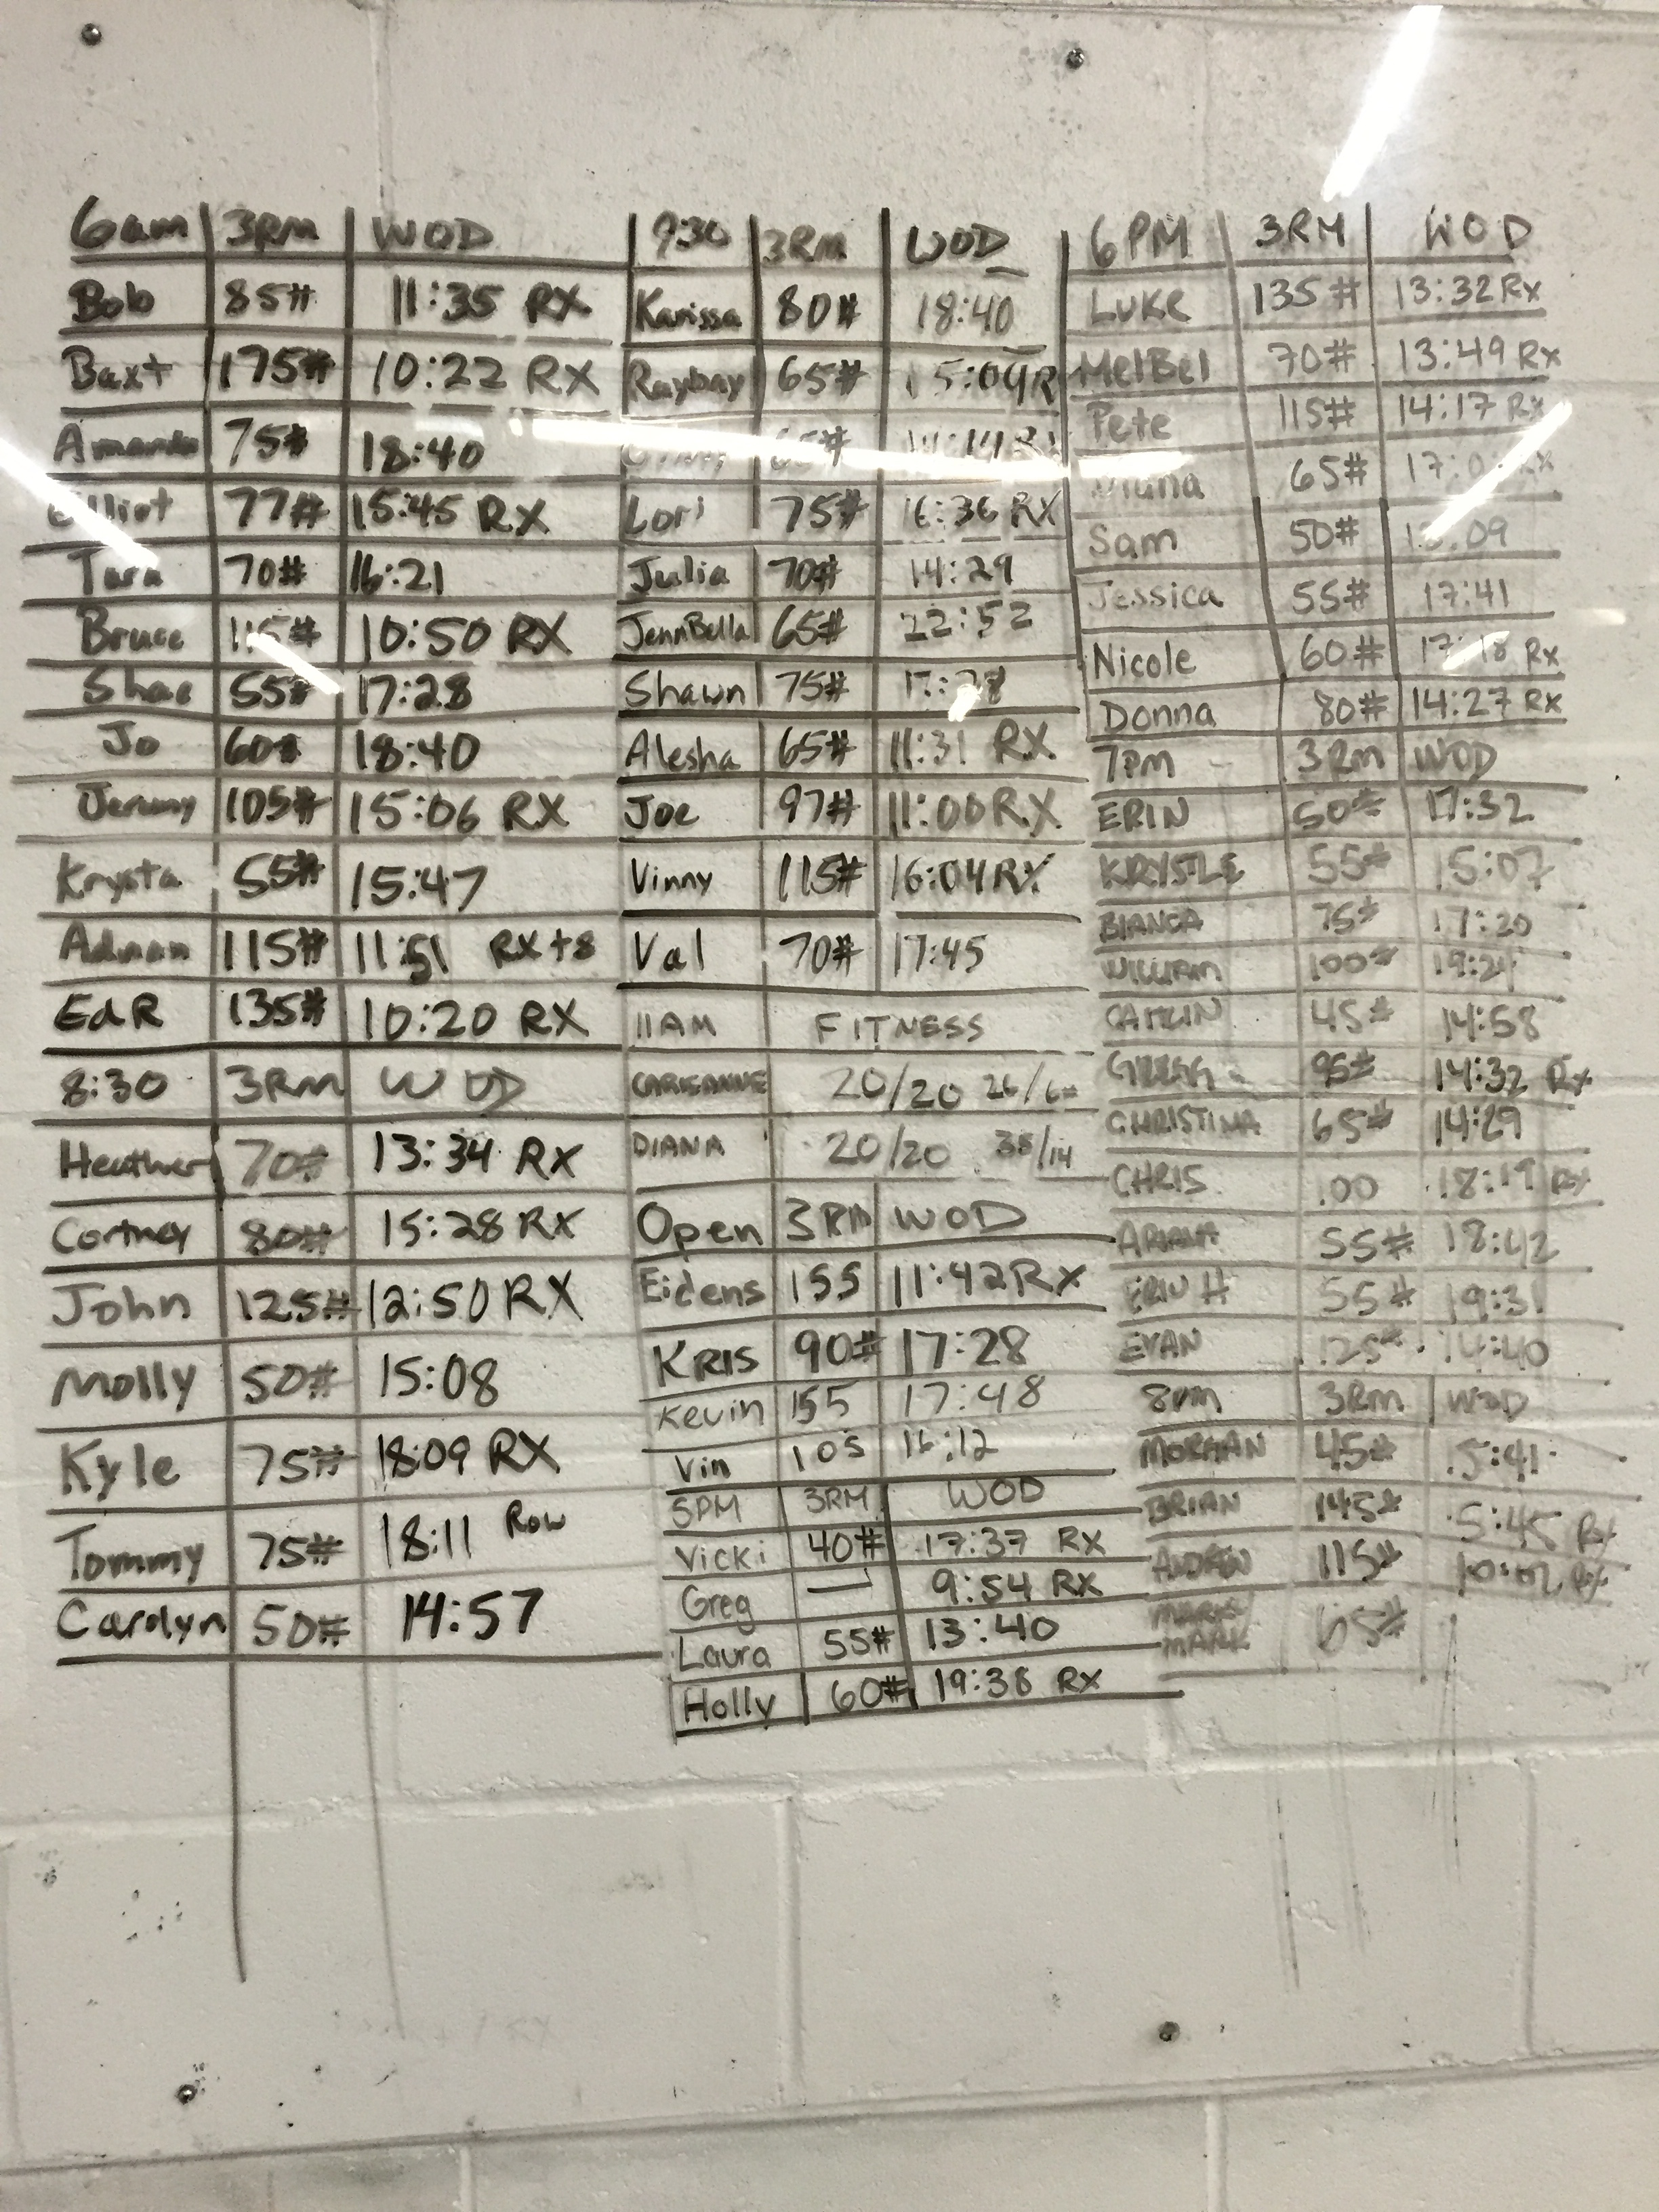 6am 3RM WOD
Bob 85# 11:35 RX
Baxt 175# 10:22 RX
Amanda 75# 18:40
Elliot 77# 15:45 RX
Tara 70# 16:21
Bruce 115# 10:50 RX
Shae 55# 17:28
Jo 60# 18:40
Jeremy 105# 15:06 RX
Krysta 55# 15:47
Adnan 115# 11:51 RX+8
EdR 135# 10:20 RX
8:30 3RM WOD
Heather 70# 13:34 RX
Cortney 80# 15:28 RX
John 125# 12:50 RX
Molly 50# 15:08
Kyle 75# 18:09 RX
Tommy 75# 18:11 Row
Carolyn 50# 14:57
9:30 3RM WOD
Karissa 80# 18:40
Raybay 65# 15:09 R
65#
Lori 75# 16:36 RX
Julia 70# 14:29
JennBella 65# 22:52
Shawn 75#
Alesha 65# 11:31 RX
Joe 97# 11:00 RX
Vinny 115# 16:04 RX
Val 70# 17:45
11AM FITNESS
CARISANNE 20/20
DIANA 20/20 35/14
Open 3RM WOD
Eidens 155 11:42 Rx
KRIS 90# 17:28
Kevin 155 17:48
Vin 105 16:12
5PM 3RM WOD
Vicki 40# 17:37 RX
Greg — 9:54 RX
Laura 55# 13:40
Holly 60# 19:38 RX
6PM 3RM WOD
LUKE 135# 13:32 Rx
MelBel 70# 13:49 Rx
Pete 115# 14:17 Rx
Diana 65#
Sam 50#
Jessica 55# 17:41
Nicole 60# 17:18 Rx
Donna 80# 14:27 RX
7pm 3RM WOD
ERIN 50# 17:32
KRYSTLE 55# 15:07
BIANCA 75# 17:20
WILLIAM 100#
CAITLIN 45# 14:58
GREGG 95# 14:32 Rx
CHRISTINA 65# 14:29
CHRIS 100 18:19 Rx
ARIANA 55# 18:42
ERIN H 55# 19:31
EVAN 125# 14:40
8pm 3RM WOD
MORGAN 45# 15:41
BRIAN 145# 5:45 Rx
115# 10:02 Rx
MARK 65#